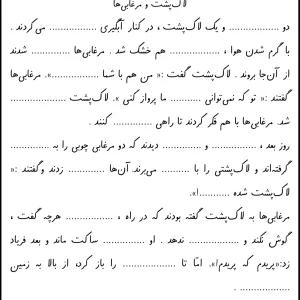 لاک‌پشت و مرغابی‌ها
دو .................. و یک لاک‌پشت ، در کنار آبگیری .................. می‌کردند .
با گرم شدن هوا ، .................. هم خشک شد . مرغابی‌ها .............. شدند
از آن‌جا بروند . لاک‌پشت گفت :« من هم با شما ..................». مرغابی‌ها
گفتند :« تو که نمی‌توانی ............ ما پرواز کنی ». لاک‌پشت ....................
شد. مرغابی‌ها با هم فکر کردند تا راهی .............. کنند .
روز بعد ، ................ و ................ دیدند که دو مرغابی چوبی را به ..............
گرفته‌اند و لاک‌پشتی را با .......... می‌برند. آن‌ها ............. زدند و گفتند :«
لاک‌پشت شده ...........!».
مرغابی‌ها به لاک‌پشت گفته بودند که در راه ، ................. هرچه گفت ،
گوش نکند و .................. ندهد . او ............... ساکت ماند و بعد فریاد
زد:«پریدم که پریدم!». امّا تا ................... را باز کرد، از بالا به زمین
.................. .